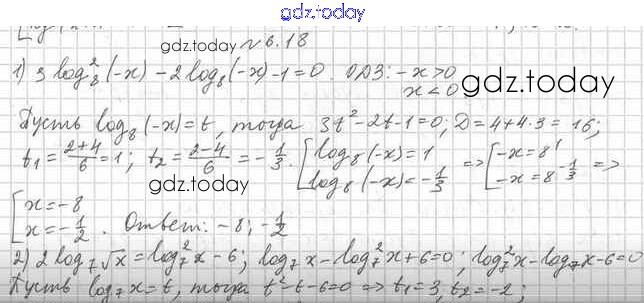 gdz.today
gdz.today № 6.18
1) 3 log₈²(-x) - 2 log₈(-x) - 1 = 0. ОДЗ: -x > 0
x < 0 gdz.today
Пусть log₈(-x) = t, тогда 3t² - 2t - 1 = 0; D = 4 + 4·3 = 16;
t₁ = (2+4)/6 = 1; t₂ = (2-4)/6 = -1/3. [log₈(-x) = 1 => [-x = 8¹
log₈(-x) = -1/3 -x = 8^(-1/3) =>
gdz.today
[x = -8
x = -1/2. Ответ: -8; -1/2
2) 2 log₇√x = log₇²x - 6; log₇x - log₇²x + 6 = 0; log₇²x - log₇x - 6 = 0
Пусть log₇x = t, тогда t² - t - 6 = 0 => t₁ = 3, t₂ = -2;